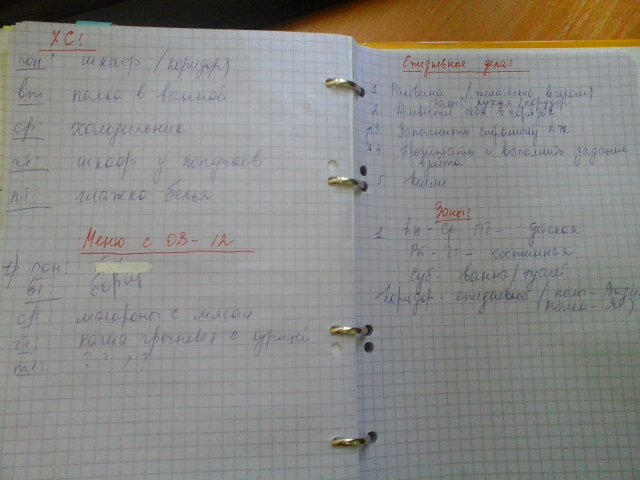 ХС!
пон: шкаф (коридор)
вт: полка в ванной
ср: холодильник
чт: шкаф у попугаев
пт: глажка белья
Меню с 08-12
1) пон:
вт: борщ
ср: макароны с мясом
чт: каша гречневая с курицей
пт: ? ? , ?
Ежедневные дела:
1 Раковина (тщательно вечером)
полы: кухня/коридор
2 Привести себя в порядок
3 Заполнить страницу КЖ
4 Прочитать и выполнить задание
5
Зоны:
1 Пн - Ср - Пт - детская
Вт - Чт - гостинная
Суб - ванна/туалет
Коридор - ежедневно (полы -
полка - Я)